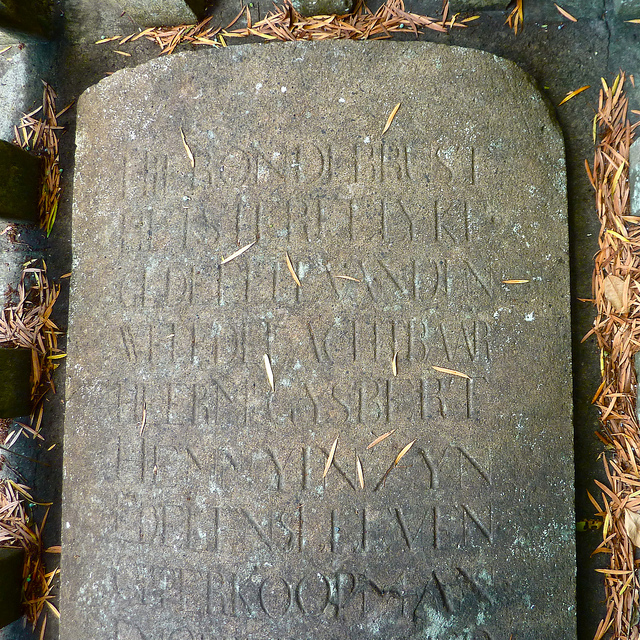 HIER ONDE BRUST
HET STERFLYKE
GEDEELTE VAN DEN
WEL EDELE ACHTBAAR
HEERN GYSBERT
HEMMY IN ZYN
EDELENS LEEVEN
OPPERKOOPMAN